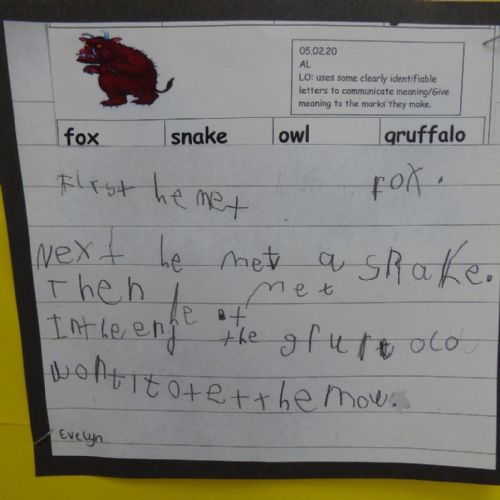 05.02.20
AL
LO: uses some clearly identifiable
letters to communicate meaning/Give
meaning to the marks they make.
fox snake owl gruffalo
First he met fox.
Next he met a snake.
Then he met
In the enj the
wontitotetthemou.
Evelyn